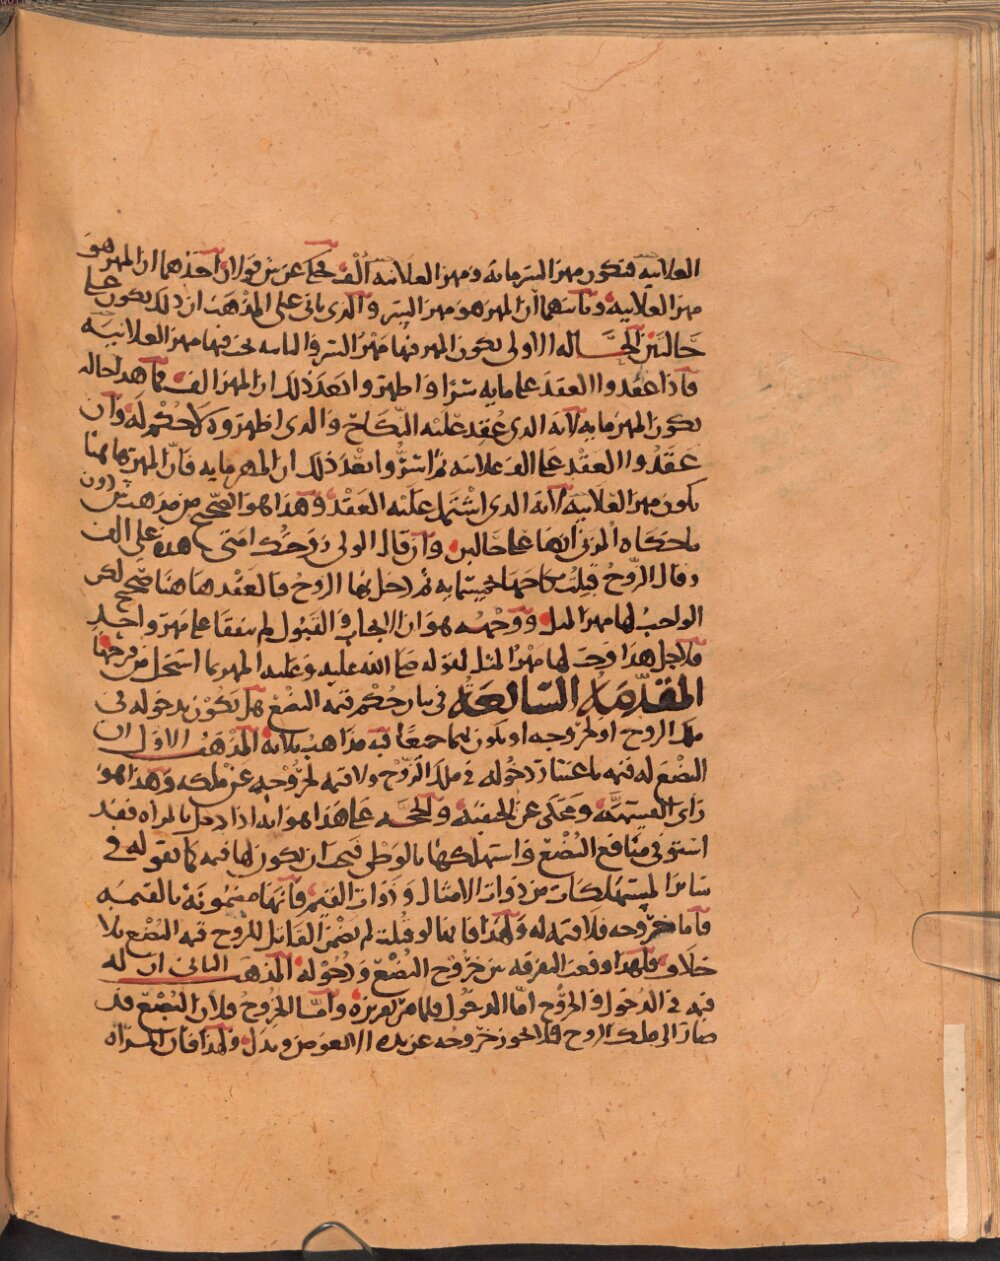 العلانيه فيكون مهر السر مايه ومهر العلانيه الف فحكى عن ش قولان احدهما ان المهر هو
مهر العلانيه وثانيهما ان المهر هو مهر السر والذى ياتى على المذهب ان ذلك يكون على
حالتين الحاله الاولى يكون المهر فيها مهر السر والثانيه يكون فيها مهر العلانيه
فاذا عقدوا العقد على مايه سرا واظهروا بعد ذلك ان المهر الف فما هذا حاله
يكون المهر مايه لانه الذى عقد عليه النكاح والذى اظهروه لا حكم له وان
عقدوا العقد على الف علانيه ثم اسروا بعد ذلك ان المهر مايه فان المهر هاهنا
يكون مهر العلانيه لانه الذى اشتمل عليه العقد وهذا هو الصحيح من مذهب ش دون
ما حكاه المزنى انها على حالين وان قال الولى زوجتك امتى هذه على الف
وقال الزوج قبلت نكاحها بخمسمايه ثم دخل بها الزوج فالعقد هاهنا صحيح لكن
الواجب لها مهر المثل ووجهه هو ان الايجاب والقبول لم يتفقا على مهر واحد
فلاجل هذا وجب لها مهر المثل لقوله صلى الله عليه وعليه المهر بما استحل من فرجها
المقدمه السابعه فى بيان حكم قيمه البضع هل يكون بدخوله فى
ملك الزوج او لخروجه او يكون لهما جميعا فيه مذاهب ثلاثه المذهب الاول ان
البضع له قيمه باعتبار دخوله فى ملك الزوج ولا قيمه لخروجه عن ملكه وهذا هو
راى القسميه ومحكى عن الحنفيه والحجه على هذا هو انه اذا دخل بالمراه فقد
استوفى منافع البضع واستهلكها بالوطى فيجب ان يكون لها قيمه كما نقوله فى
سائر المستهلكات من ذوات الامثال وذوات القيم فانها مضمونه بالقيمه
فاما خروجه فلا قيمه له ولهذا فانها لو قتلت لم يضمن القاتل للزوج قيمه البضع بلا
خلاف فلهذا وقعت التفرقه بين خروج البضع ودخوله المذهب الثانى ان له
قيمه فى الدخول والخروج اما الدخول فلما مر تقريره واما الخروج فلان البضع قد
صار الى ملك الزوج فلا يجوز خروجه عن يده الا بعوض وبدل ولهذا فان المراه